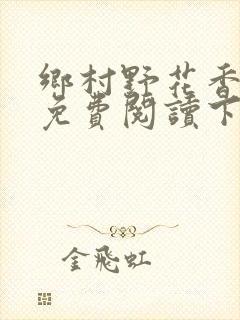 鄉村野花香
免費閱讀下
金飛虹